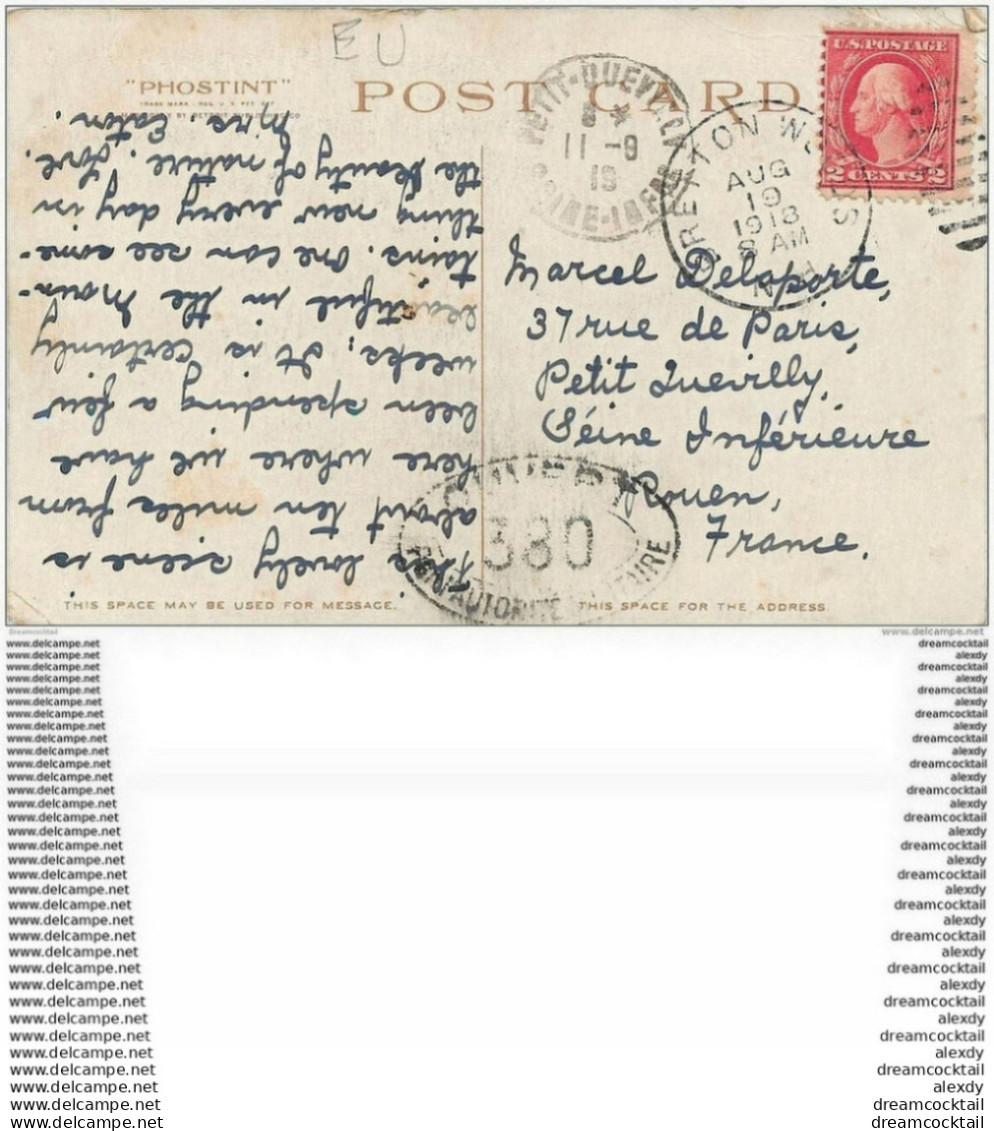 EU
"PHOSTINT"
POST CARD
U.S. POSTAGE
2 CENTS 2
PETIT-QUEVILLY
11 -9
SEINE-INFRE
BRETTON WOODS
AUG
19
1918
8 AM
N.H.
This lovely scene is
about ten miles from
here where we have
been spending a few
weeks. It is certainly
beautiful in the moun-
tains. One can see some-
thing new every day in
the beauty of nature. Love,
Mrs. Eaton.
Marcel Delaporte,
37 rue de Paris,
Petit Quevilly,
Séine Inférieure
Rouen,
France.
OUVERT
380
PAR AUTORITÉ MILITAIRE
THIS SPACE MAY BE USED FOR MESSAGE.
THIS SPACE FOR THE ADDRESS.
Dreamcocktail
www.delcampe.net
www.delcampe.net dreamcocktail
www.delcampe.net alexdy
www.delcampe.net dreamcocktail
www.delcampe.net alexdy
www.delcampe.net dreamcocktail
www.delcampe.net alexdy
www.delcampe.net dreamcocktail
www.delcampe.net alexdy
www.delcampe.net dreamcocktail
www.delcampe.net alexdy
www.delcampe.net dreamcocktail
www.delcampe.net alexdy
www.delcampe.net dreamcocktail
www.delcampe.net alexdy
www.delcampe.net dreamcocktail
www.delcampe.net alexdy
www.delcampe.net dreamcocktail
www.delcampe.net alexdy
www.delcampe.net dreamcocktail
www.delcampe.net alexdy
www.delcampe.net dreamcocktail
www.delcampe.net alexdy
www.delcampe.net dreamcocktail
www.delcampe.net alexdy
www.delcampe.net dreamcocktail
www.delcampe.net alexdy
www.delcampe.net dreamcocktail
www.delcampe.net alexdy
www.delcampe.net dreamcocktail
www.delcampe.net alexdy
www.delcampe.net dreamcocktail
www.delcampe.net alexdy
www.delcampe.net dreamcocktail
www.delcampe.net dreamcocktail